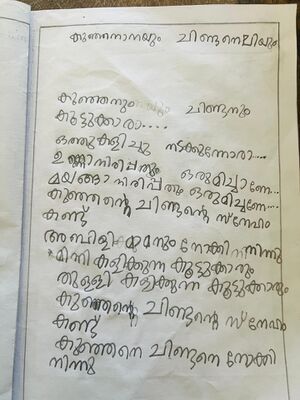 കുഞ്ഞനാനയും ചിണ്ടനെലിയും
കുഞ്ഞനും ചിണ്ടനും
കൂട്ടുക്കാരാ.....
ഒത്തുകളിച്ചു നടക്കുന്നോരാ....
ഉണ്ണാനിരിപ്പതും ഒരുമിച്ചാണേ...
മയങ്ങാനിരിപ്പതും ഒരുമിച്ചണേ....
കുഞ്ഞൻ്റെ ചിണ്ടൻ്റെ സ്നേഹം
കണ്ട്
അമ്പിളിമാമനും നോക്കിനിന്നു
മിന്നി കളിക്കുന്ന കൂട്ടുക്കാരും
തുള്ളി കളിക്കുന്ന കൂട്ടുക്കാരും
കുഞ്ഞൻ്റെ ചിണ്ടൻ്റെ സ്നേഹം
കണ്ട്
കുഞ്ഞനെ ചിണ്ടനെ നോക്കി
നിന്നു